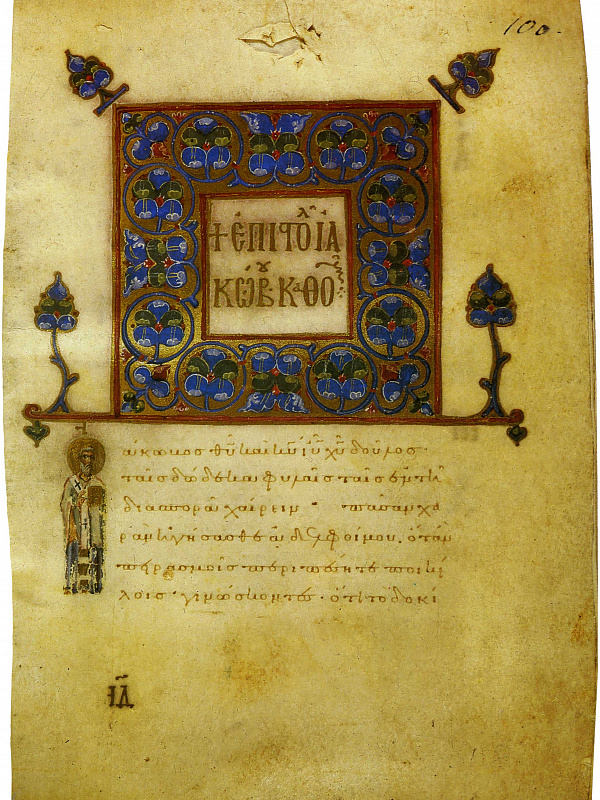 100.
+ ἐπιϛολ ϊα
κώβου καθο
άκωβος θῦ καὶ κῦ ἰῦ χῦ δοῦλος·
ταῖς δώδεκα φυλαῖς ταῖς ἐν τῆ
διασπορᾶ χαίρειν· πᾶσαν χα
ρὰν ἡγήσασθε ἀδελφοί μου. ὅταν
πειρασμοῖς περιπέσητε ποικί
λοις· γινώσκοντες· ὅτι τὸ δοκί
ΙΔ